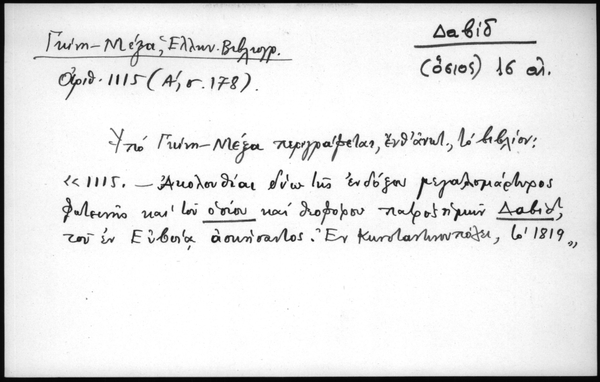 Γκίνη-Μέξα, Ἑλλην. Βιβλιογρ.
ἀριθ. 1115 (Α΄, σ. 178).
Δαβίδ
(ὅσιος) 16 αἰ.
Ὑπό Γκίνη-Μέξα περιγράφεται, ἔνθ' ἀνωτ., τό βιβλίον:
«1115. – Ἀκολουθίαι δύω τῆς ἐνδόξου μεγαλομάρτυρος
Φωτεινῆς καί τοῦ ὁσίου καί θεοφόρου πατρός ἡμῶν Δαβίδ,
τοῦ ἐν Εὐβοίᾳ ἀσκήσαντος. Ἐν Κωνσταντινουπόλει, τό 1819»